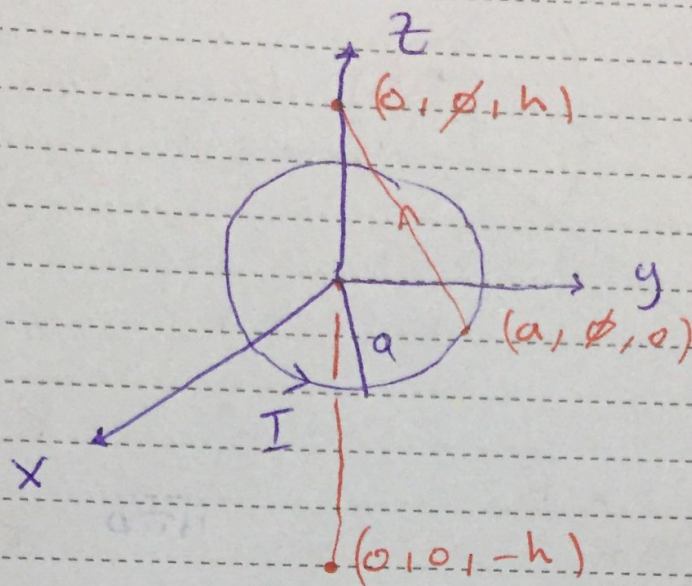 z
(0, ø, h)
y
(a, ø, 0)
a
I
x
(0, 0, -h)